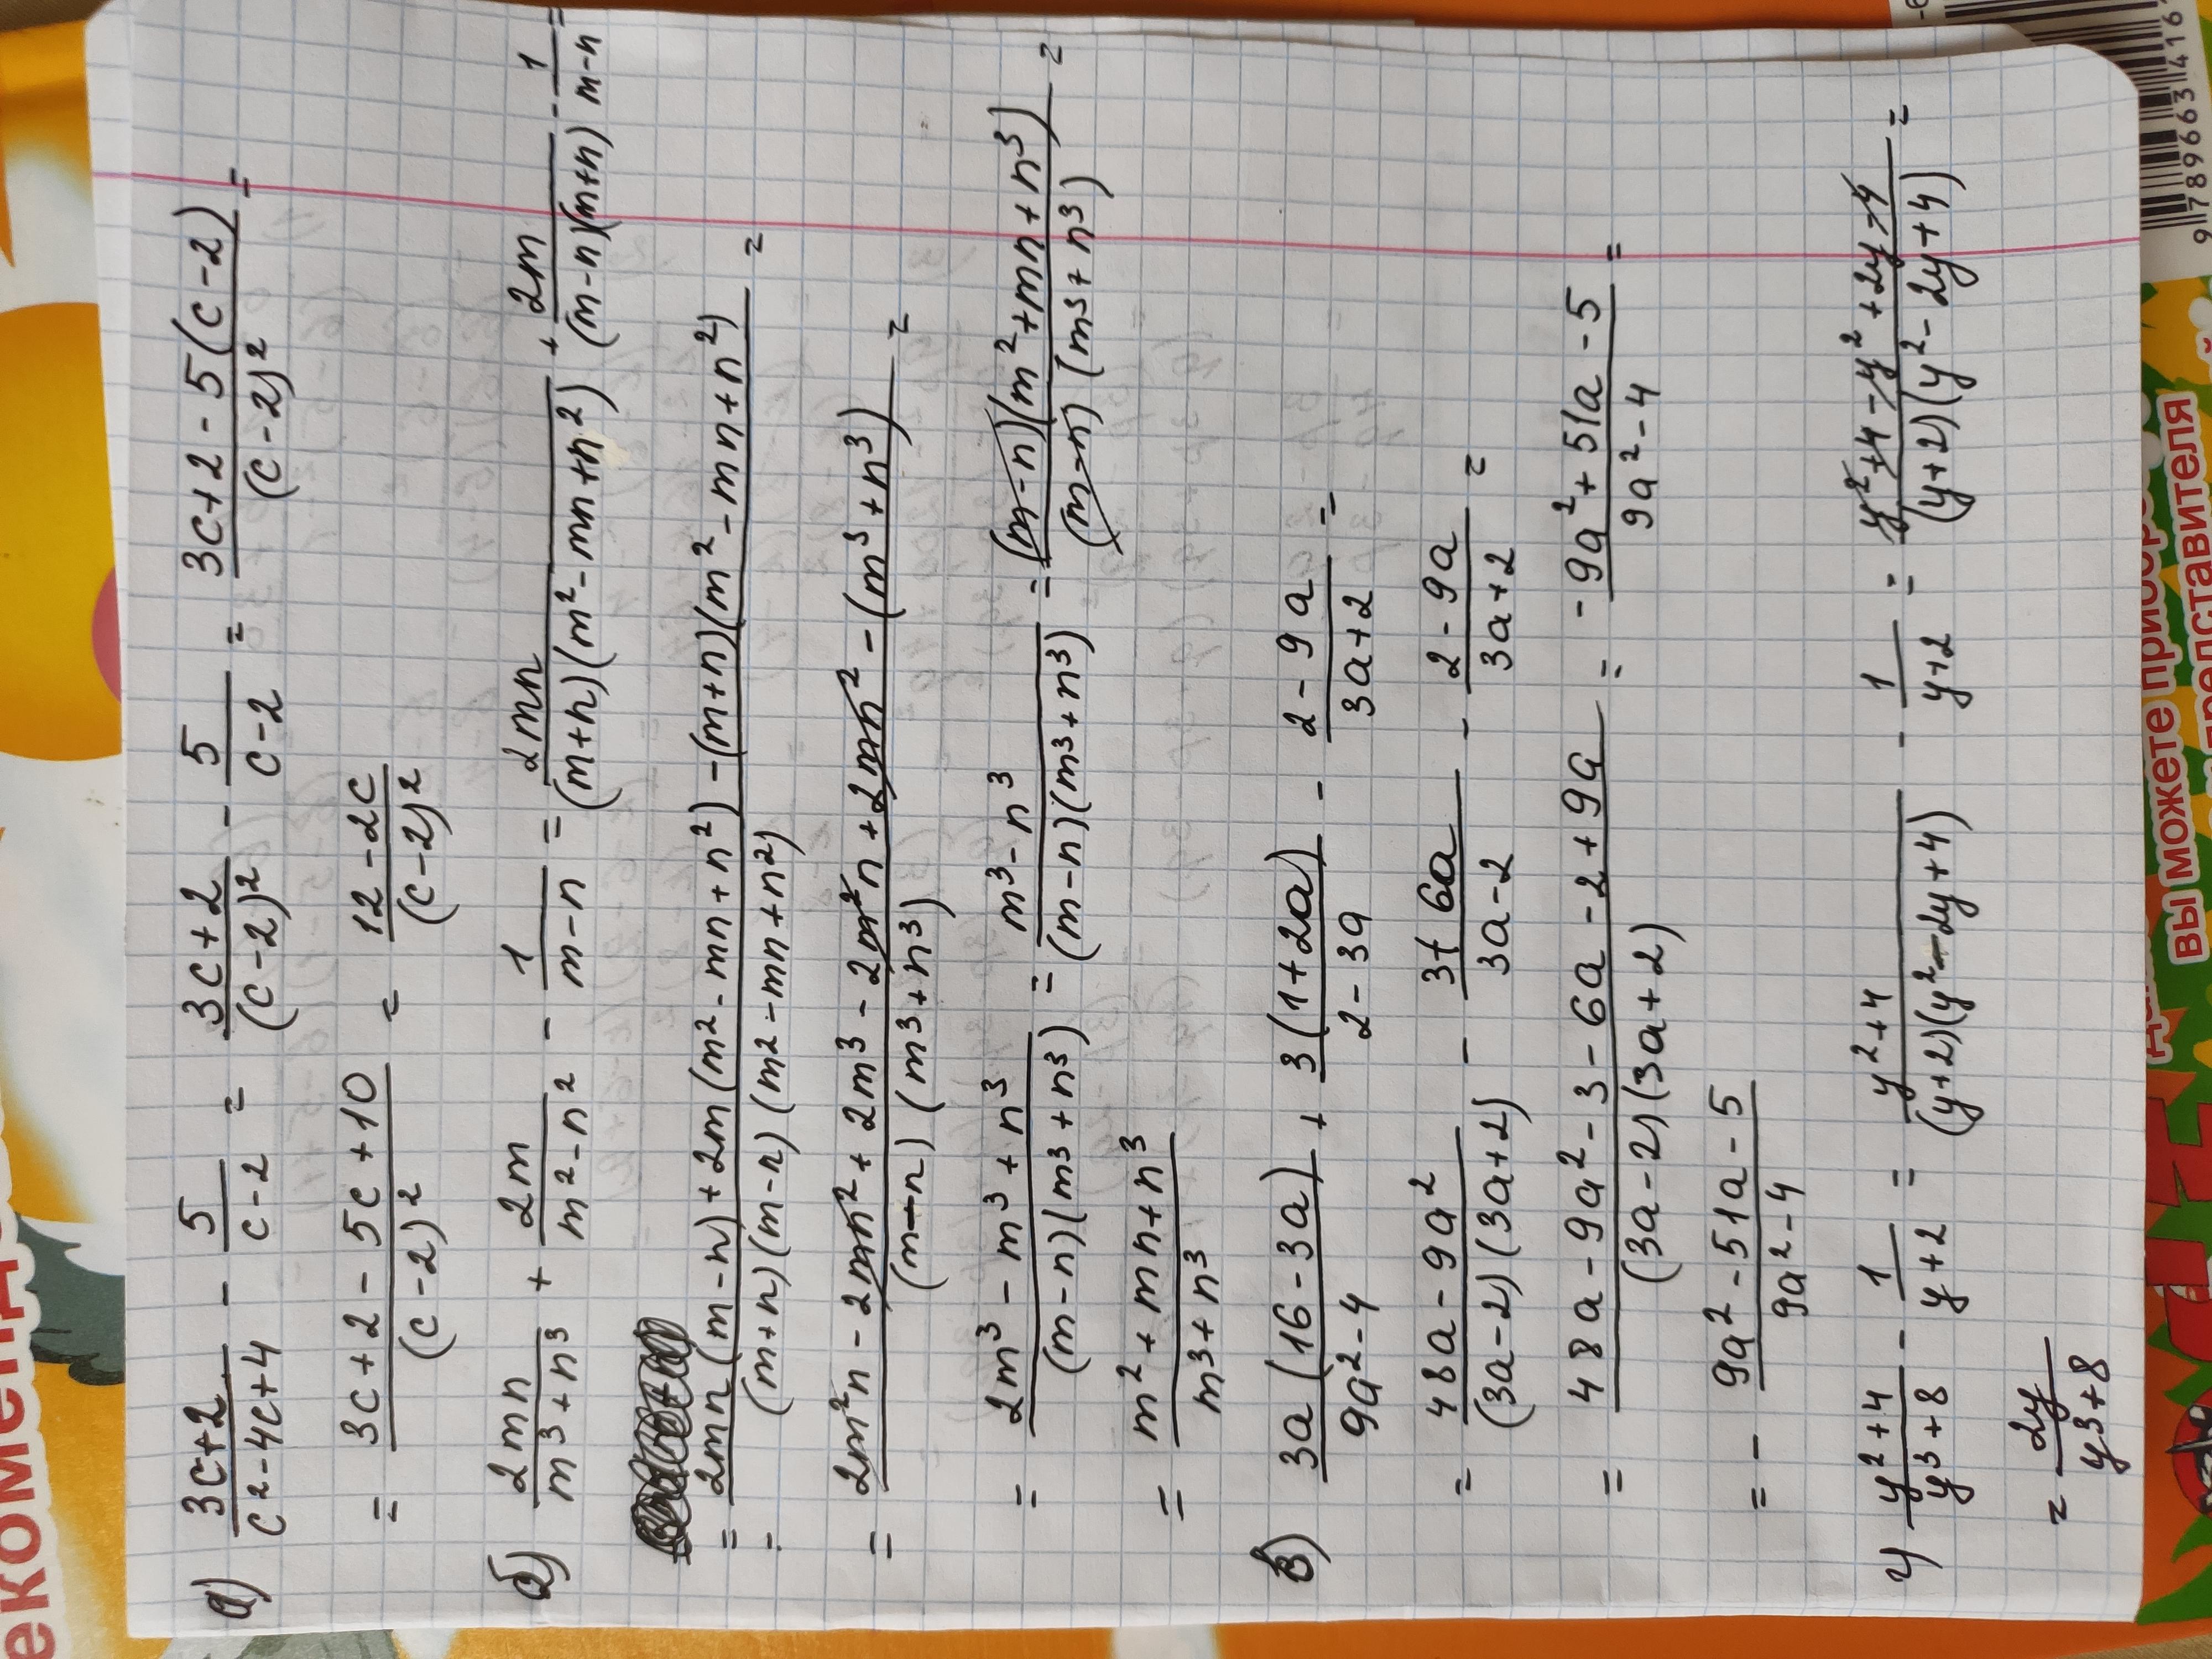 а) (3c+2)/(c²-4c+4) - 5/(c-2) = (3c+2)/(c-2)² - 5/(c-2) = (3c+2-5(c-2))/(c-2)² =
= (3c+2-5c+10)/(c-2)² = (12-2c)/(c-2)²
б) 2mn/(m³+n³) + 2m/(m²-n²) - 1/(m-n) = 2mn/((m+n)(m²-mn+n²)) + 2m/((m-n)(m+n)) - 1/(m-n) =
= (2mn(m-n)+2m(m²-mn+n²)-(m+n)(m²-mn+n²))/((m+n)(m-n)(m²-mn+n²)) =
= (2m²n-2mn²+2m³-2m²n+2mn²-(m³+n³))/((m-n)(m³+n³)) =
= (2m³-m³+n³)/((m-n)(m³+n³)) = (m³-n³)/((m-n)(m³+n³)) = ((m-n)(m²+mn+n³))/((m-n)(m³+n³)) =
= (m²+mn+n³)/(m³+n³)
в) (3a(16-3a))/(9a²-4) + (3(1+2a))/(2-3a) - (2-9a)/(3a+2) =
= (48a-9a²)/((3a-2)(3a+2)) - (3+6a)/(3a-2) - (2-9a)/(3a+2) =
= (48a-9a²-3-6a-2+9a)/((3a-2)(3a+2)) = (-9a²+51a-5)/(9a²-4) =
= - (9a²-51a-5)/(9a²-4)
г) (y²+4)/(y³+8) - 1/(y+2) = (y²+4)/((y+2)(y²-2y+4)) - 1/(y+2) = (y²+4-y²+2y-4)/((y+2)(y²-2y+4)) =
= 2y/(y³+8)
вы можете приобр
представителя
9 789663 416